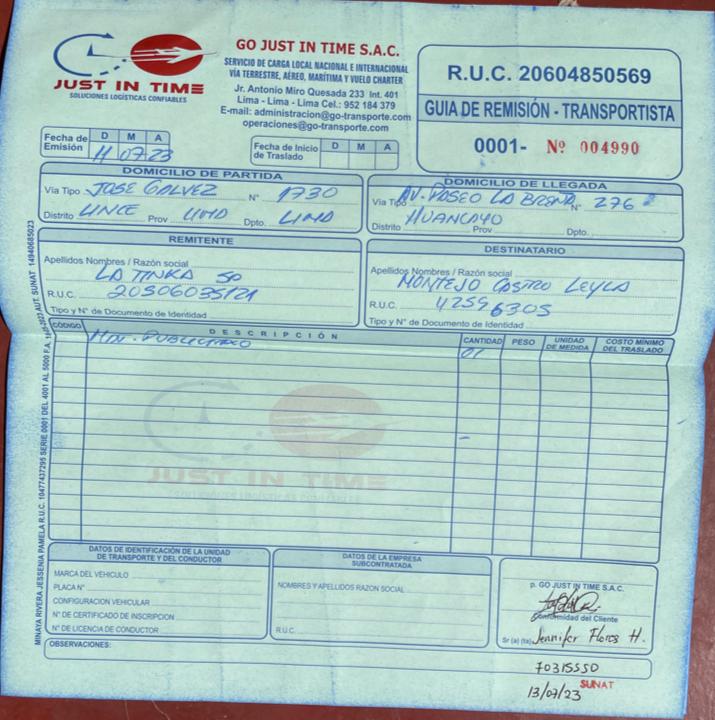 JUST IN TIME
SOLUCIONES LOGÍSTICAS CONFIABLES
GO JUST IN TIME S.A.C.
SERVICIO DE CARGA LOCAL NACIONAL E INTERNACIONAL
VÍA TERRESTRE, AÉREO, MARÍTIMA Y VUELO CHARTER
Jr. Antonio Miro Quesada 233 Int. 401
Lima - Lima - Lima Cel.: 952 184 379
E-mail: administracion@go-transporte.com
operaciones@go-transporte.com
R.U.C. 20604850569
GUIA DE REMISIÓN - TRANSPORTISTA
0001- Nº 004990
Fecha de Emisión D M A
11 07-23
Fecha de Inicio de Traslado D M A
DOMICILIO DE PARTIDA
Vía Tipo JOSE GALVEZ N° 1730
Distrito LINCE Prov LIMA Dpto. LIMA
DOMICILIO DE LLEGADA
Vía Tipo AV. PASEO LA BREÑA N° 276
Distrito HUANCAYO Prov Dpto.
REMITENTE
Apellidos Nombres / Razón social
LA TINKA SA
R.U.C. 20506035121
Tipo y N° de Documento de Identidad
DESTINATARIO
Apellidos Nombres / Razón social
MONTEJO CASTRO LEYLA
R.U.C. 42596305
Tipo y N° de Documento de Identidad
CÓDIGO DESCRIPCIÓN CANTIDAD PESO UNIDAD DE MEDIDA COSTO MÍNIMO DEL TRASLADO
PUBLICITARIO 01
JUST IN TIME
MINAYA RIVERA JESSENIA PAMELA R.U.C. 10477437295 SERIE 0001 DEL 4001 AL 5000 F.A. AUT. SUNAT 14940685023
DATOS DE IDENTIFICACIÓN DE LA UNIDAD
DE TRANSPORTE Y DEL CONDUCTOR
MARCA DEL VEHICULO
PLACA N°
CONFIGURACION VEHICULAR
N° DE CERTIFICADO DE INSCRIPCION
N° DE LICENCIA DE CONDUCTOR
DATOS DE LA EMPRESA
SUBCONTRATADA
NOMBRES Y APELLIDOS RAZON SOCIAL
R.U.C.
p. GO JUST IN TIME S.A.C.
Conformidad del Cliente
Sr (a) (ta) Jennifer Flores H.
OBSERVACIONES:
70315550
SUNAT
13/07/23